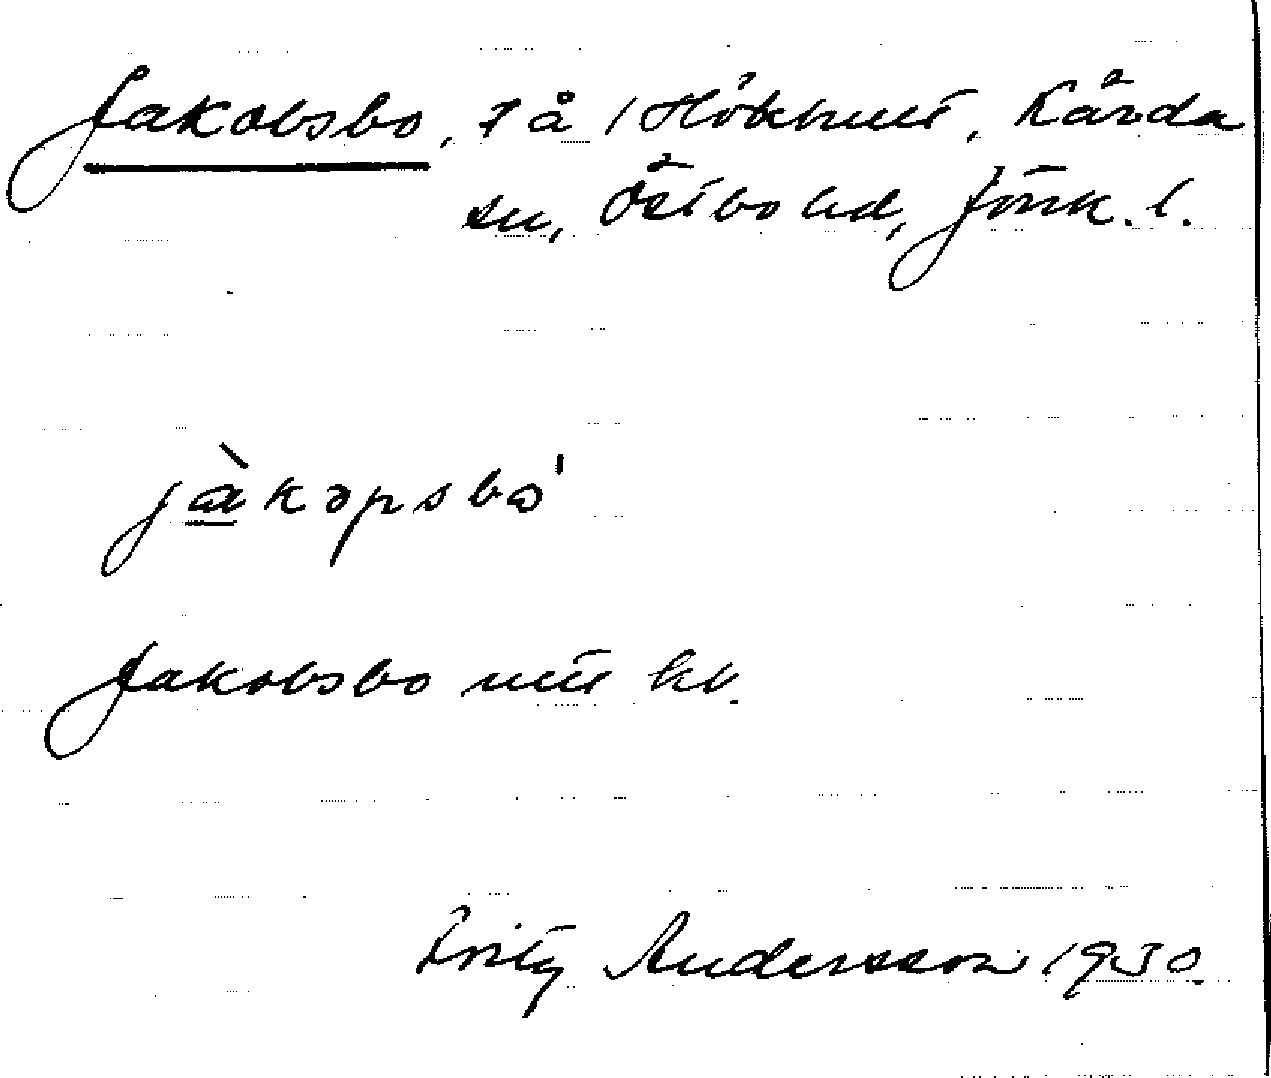 Jakobsbo, t å 1 Hökhult, Kärda
sn, Östbo hd, Jönk. l.
jàkəpsbo'
Jakobsbo
Fritz Andersson 1930.